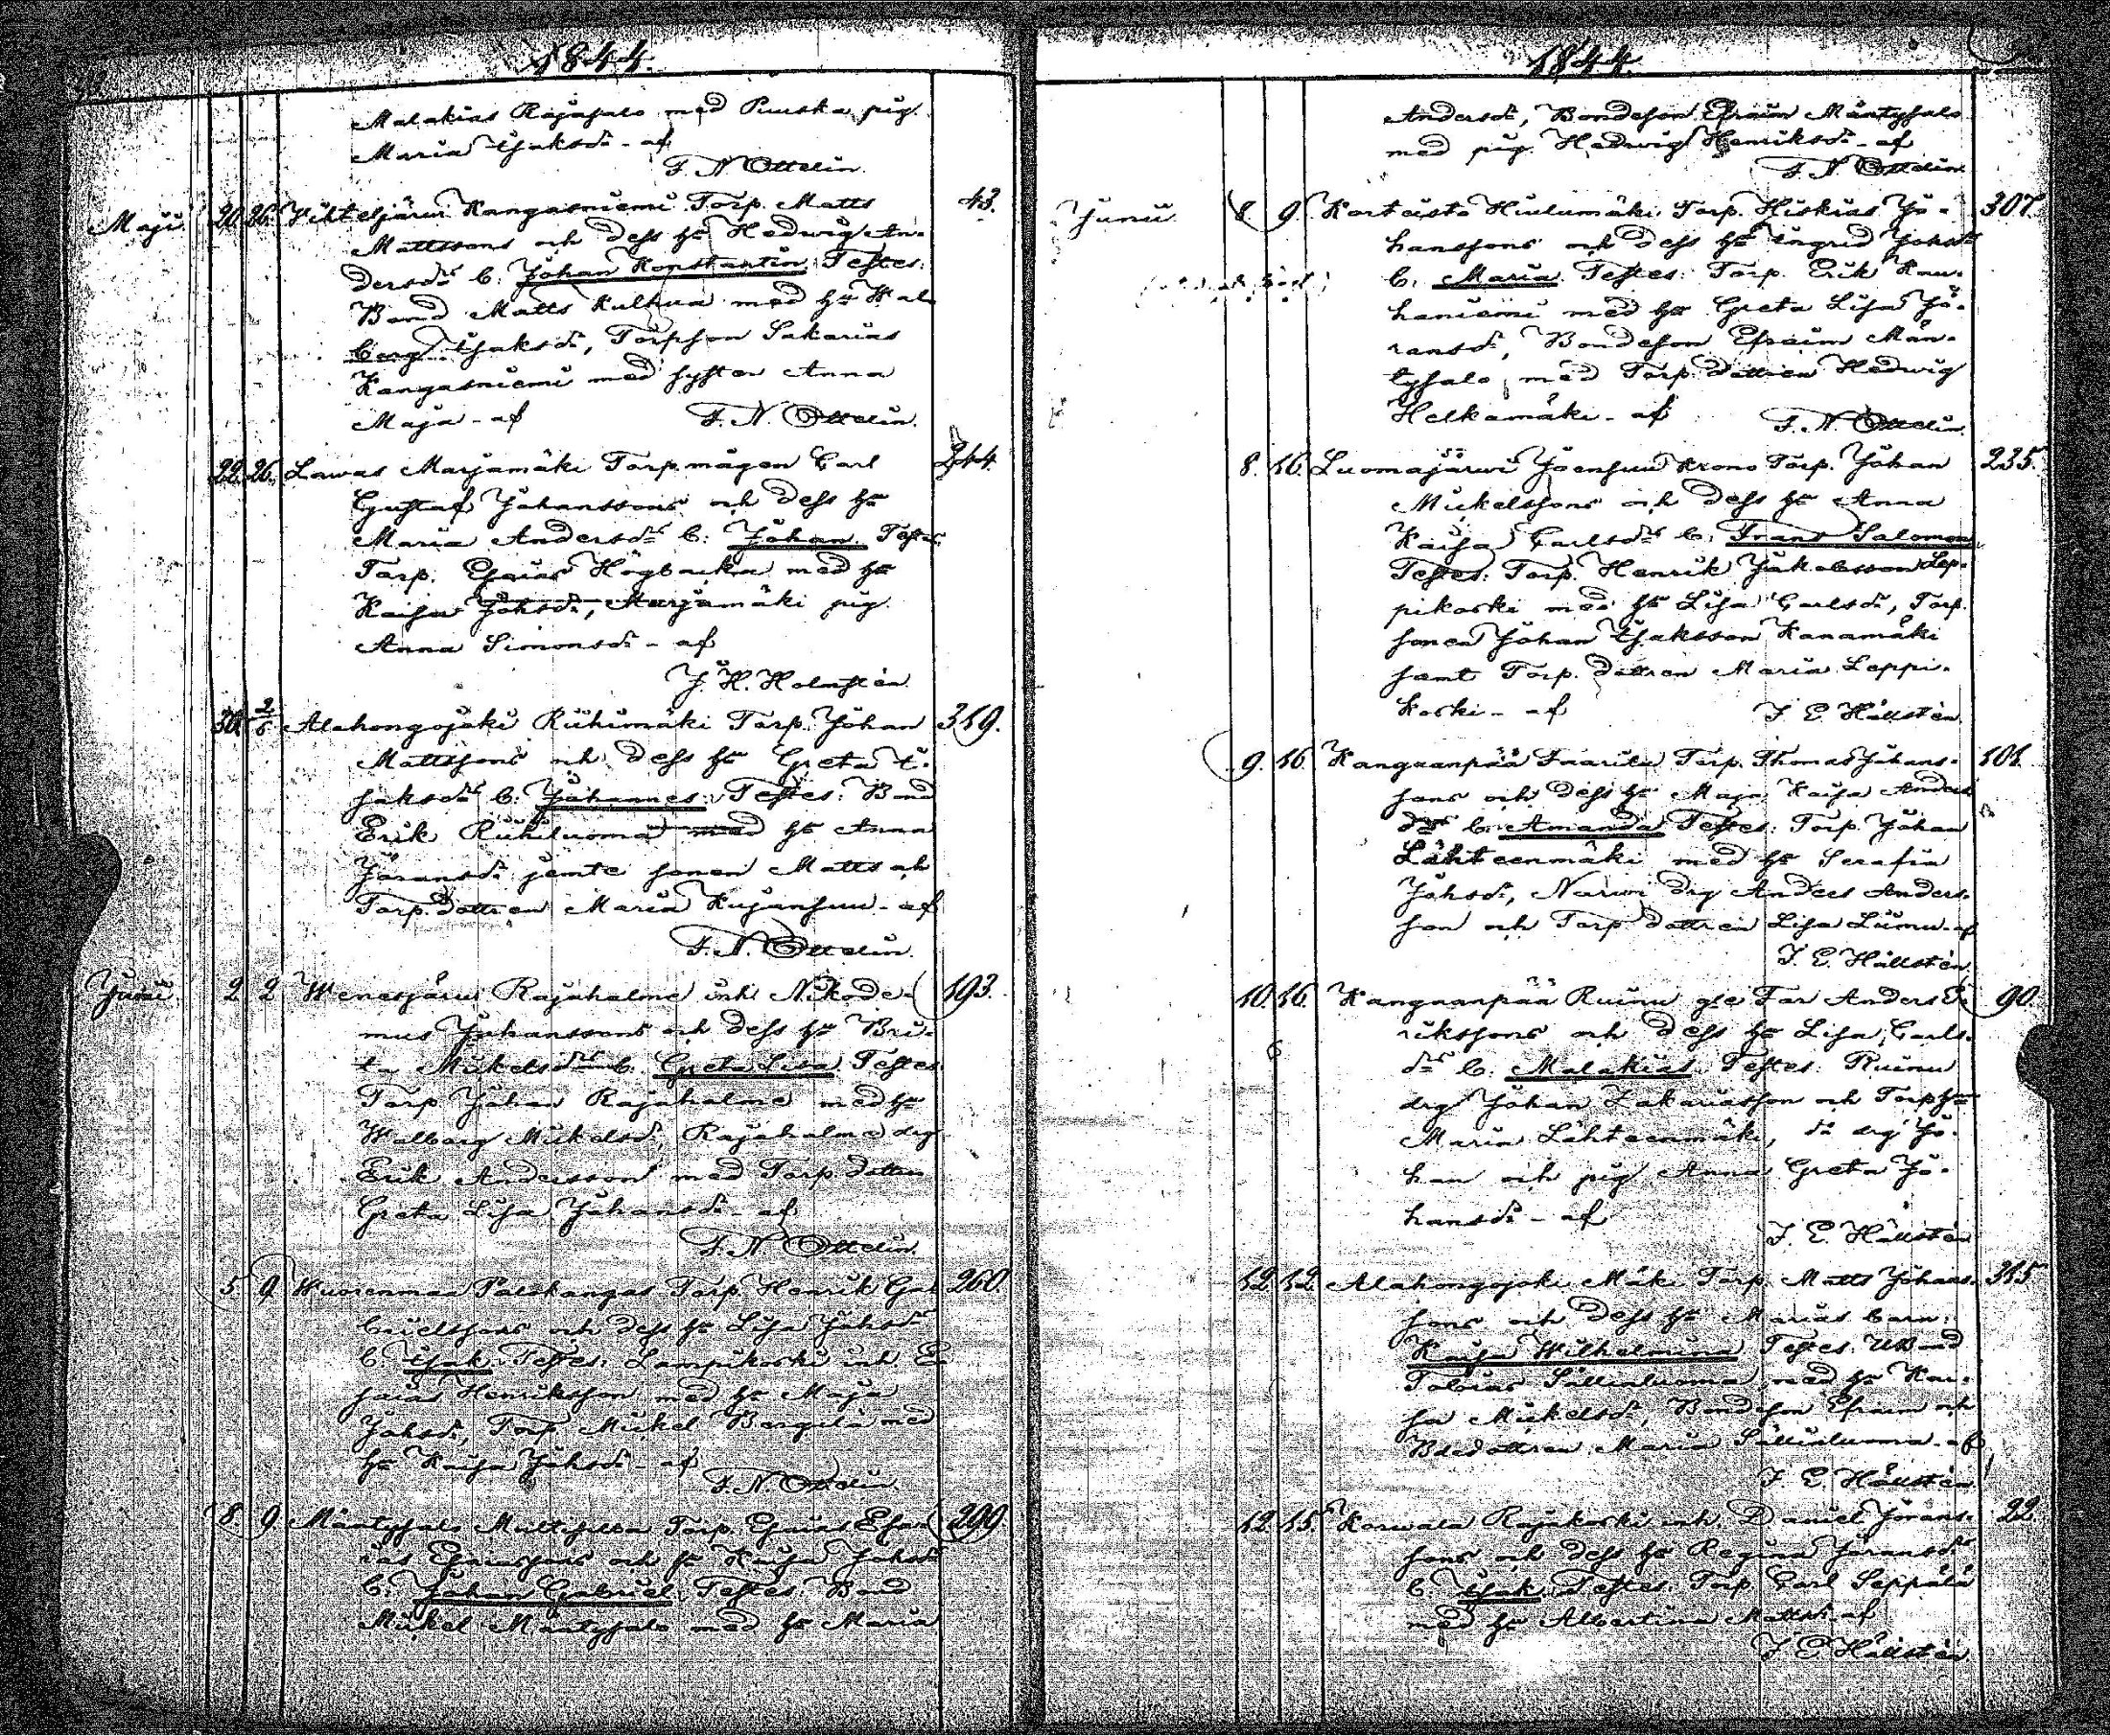 1844.
Malakias Rajasalo med Puuska pig.
Maria Isaksdr - af
F. N. Ottelin.
Maji 20. 26. Vihteljärvi Kangasniemi Torp. Matts 43.
Mattssons och dess hu Hedwig An-
dersdrs b. Johan Konstantin. Testes:
Bond Matts Kulhua med hu Wal-
borg Isaksdr, Torpson Sakarias
Kangasniemi med syster Anna
Maja - af F. N. Ottelin.
22. 26. Lawas Marjamäki Torp. mågen Carl 244
Gustaf Johanssons och dess hu
Maria Andersdrs b. Johan. Testes
Torp. Esaias Högbacka med hu
Kaisa Johsdr, Marjamäki pig.
Anna Simonsdr - af
J. H. Holmstén.
30. 2/6 Alahongojoki Riihimäki Torp. Johan 319.
Mattssons och dess hu Greta I-
saksdrs b. Johannes. Testes: Bond
Erik Riihiluoma med hu Anna
Göransdr jemte sonen Matts och
Torp. dottren Maria Kujansuu - af
F. N. Ottelin.
Junii 2 2 Wenesjärvi Rajahalme inh. Nikode- 193.
mus Johanssons och dess hu Bri-
ta Mickelsdrs b. Greta Lisa Testes
Torp Johan Rajahalme med hu
Walborg Mickelsdr, Rajahalme drg
Erik Andersson med Torp dottren
Greta Lisa Johansdr - af
F. N. Ottelin.
5 9 Wuorenmaa Palokangas Torp. Henrik Ga- 260.
brielssons och dess hu Lisa Johsdrs
b. Isak. Testes: Lampikoski inh. E-
saias Henriksson med hu Maja
Johsdr, Torp. Mickel Bergilä med
hu Kaisa Johsdr - af
F. N. Ottelin
8. 9 Mäntysalo Torp. Esaias 299
Esaiassons och hu Kaisa Johsdrs
b. Johan Gabriel. Testes Bond
Mickel Mäntysalo med hu Maria
1844.
Andersdr, Bondeson Efraim Mäntysalo
med pig. Hedwig Henriksdr - af
F. N. Ottelin.
Junii 8. 9. Kortiisto Hiulumäki Torp. Hiskias Jo- 307.
hanssons och dess hu Ingrid Johsdrs
b. Maria. Testes: Torp. Erik Kau-
haniemi med hu Greta Lisa Gö-
ransdr, Bondeson Efraim Män-
tysalo, med Torp. dottren Hedwig
Helkamäki - af F. N. Ottelin.
8. 16. Luomajärvi Joensuu Krono Torp. Johan 235.
Mickelssons och dess hu Anna
Kaisa Carlsdrs b. Frans Salomon
Testes: Torp. Henrik Jakobsson Lep-
pikoski med hu Lisa Carlsdr, Torp.
sonen Johan Isaksson Kanamäki
samt Torp. dottren Maria Leppi-
koski - af J. E. Hällstén.
9. 16. Kangaanpää Inarila Torp. Thomas Johans- 101.
sons och dess hu Maja Kaisa Anders
drs b. Amanda Testes: Torp. Johan
Lähteenmäki med hu Serafia
Johsdr, Narwi drg Anders Anders-
son och Torp dottren Lisa Liimu - af
J. E. Hällstén.
10. 16. Kangaanpää Ruinu gle Far Anders E- 90.
rikssons och dess hu Lisa Carls-
drs b. Malakias. Testes: Ruinu
drg Johan Zakariasson och Torp hu
Maria Lähteenmäki, do drg Jo-
han och pig Anna Greta Jo-
hansdr - af
J. E. Hällstén
12. 12. Alahongojoki Mäki Torp. Matts Johans- 315
sons och dess hu Marias barn:
Kaisa Wilhelmina Testes: UBond
Tobias Sillinluoma med hu Kai-
sa Mickelsdr, Bondeson Efraim och
Bdedottren Maria Sillinluoma - af
J. E. Hällstén.
12. 15. Korwala Rajakoski inh. Daniel Jörans- 22.
sons och dess hu Regina Jöransdrs
b. Isak. Testes: Torp Carl Seppälä
med hu Albertina Mattsdr - af
J. E. Hällstén